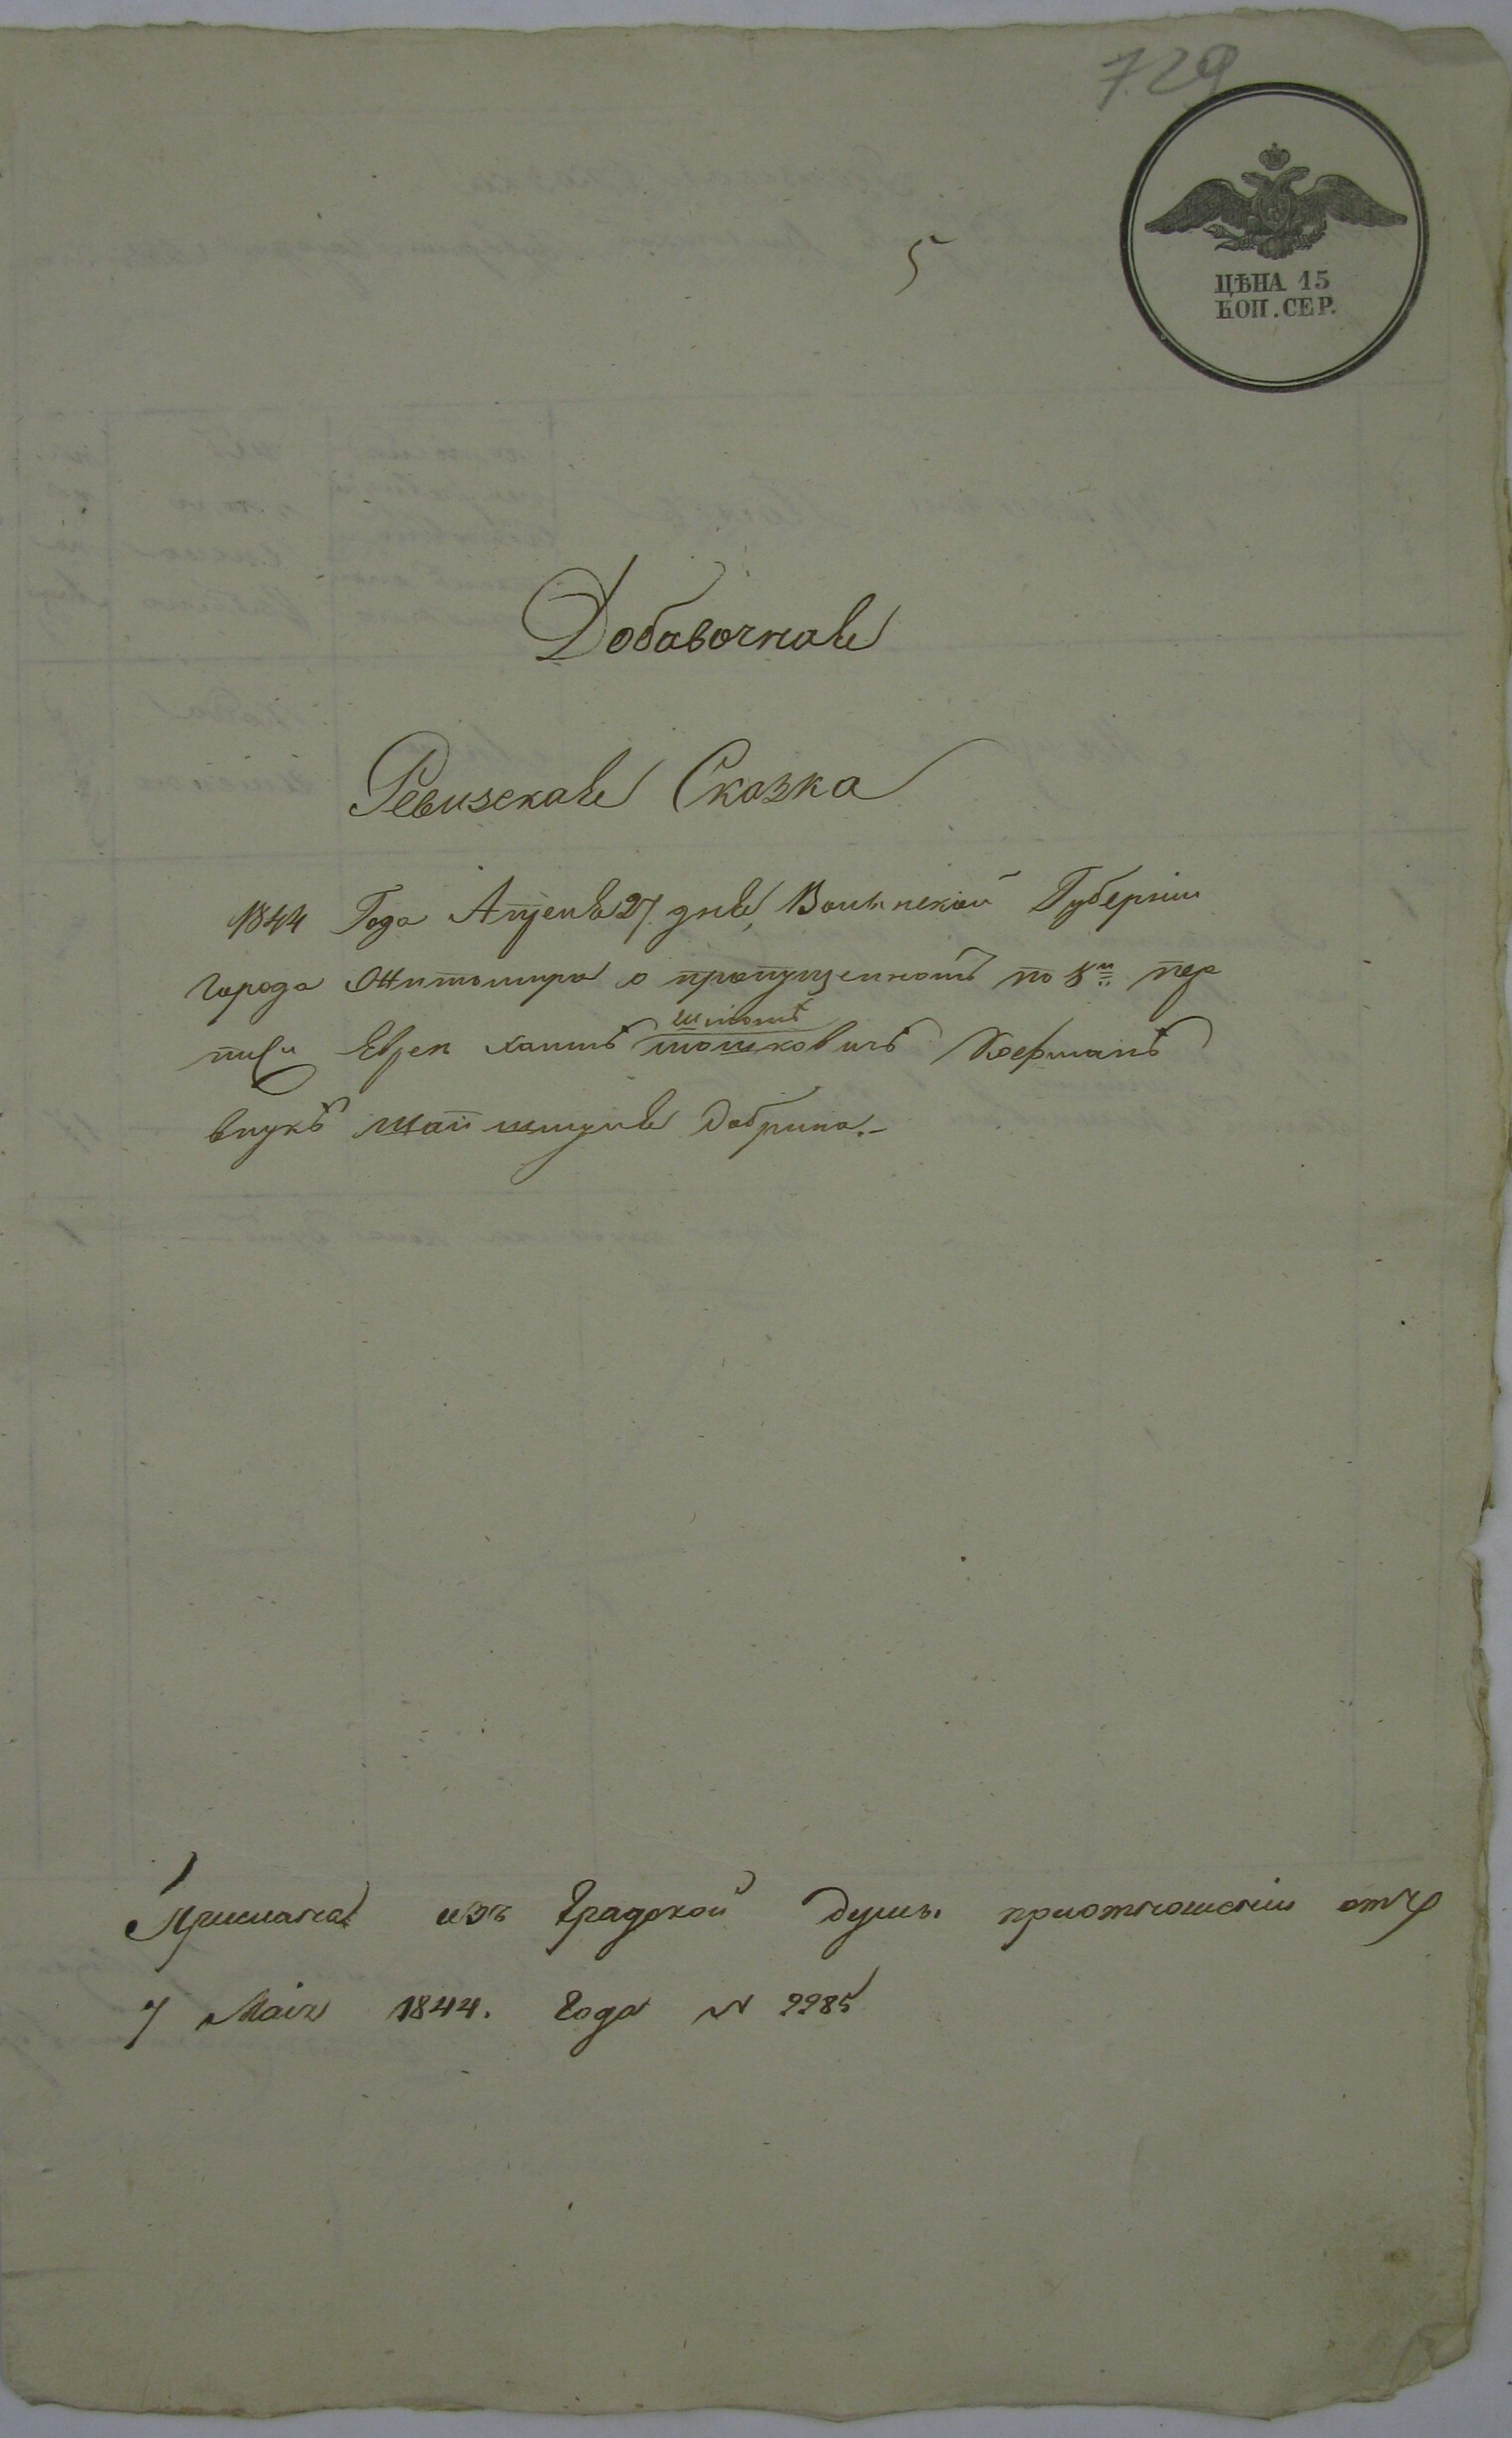 729
5
ЦѢНА 15
КОП. СЕР.
Добавочная
Ревизская Сказка
1844 Года Апреля 27 дня, Волынской Губерніи
города Житомира о пропущенномъ по 8й пере
писи Еврея Хаимъ
внукъ Добрина.-
Прислана изъ Градской Думы приотношеніи отъ
7 Маія 1844. Года N 2285